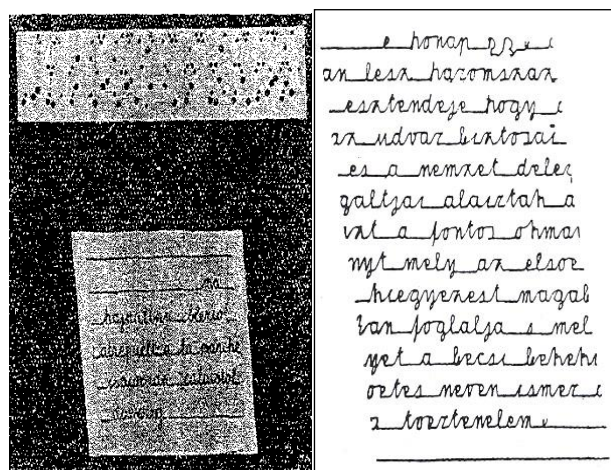 ma
hajnalban blerio
atrepuelte la manche
csatornan calaistol
e honap 23 e i
an lesz haromszaz
esztendeje hogy
az udvar biztosai
es a nemzet deleg
galtjai alairtak a
zt a fontos okma
nyt mely az elsoe
kiegyezest magab
van foglalja s mel
yet a becsi bekeki
oetes neven ismer i
a toertenelem